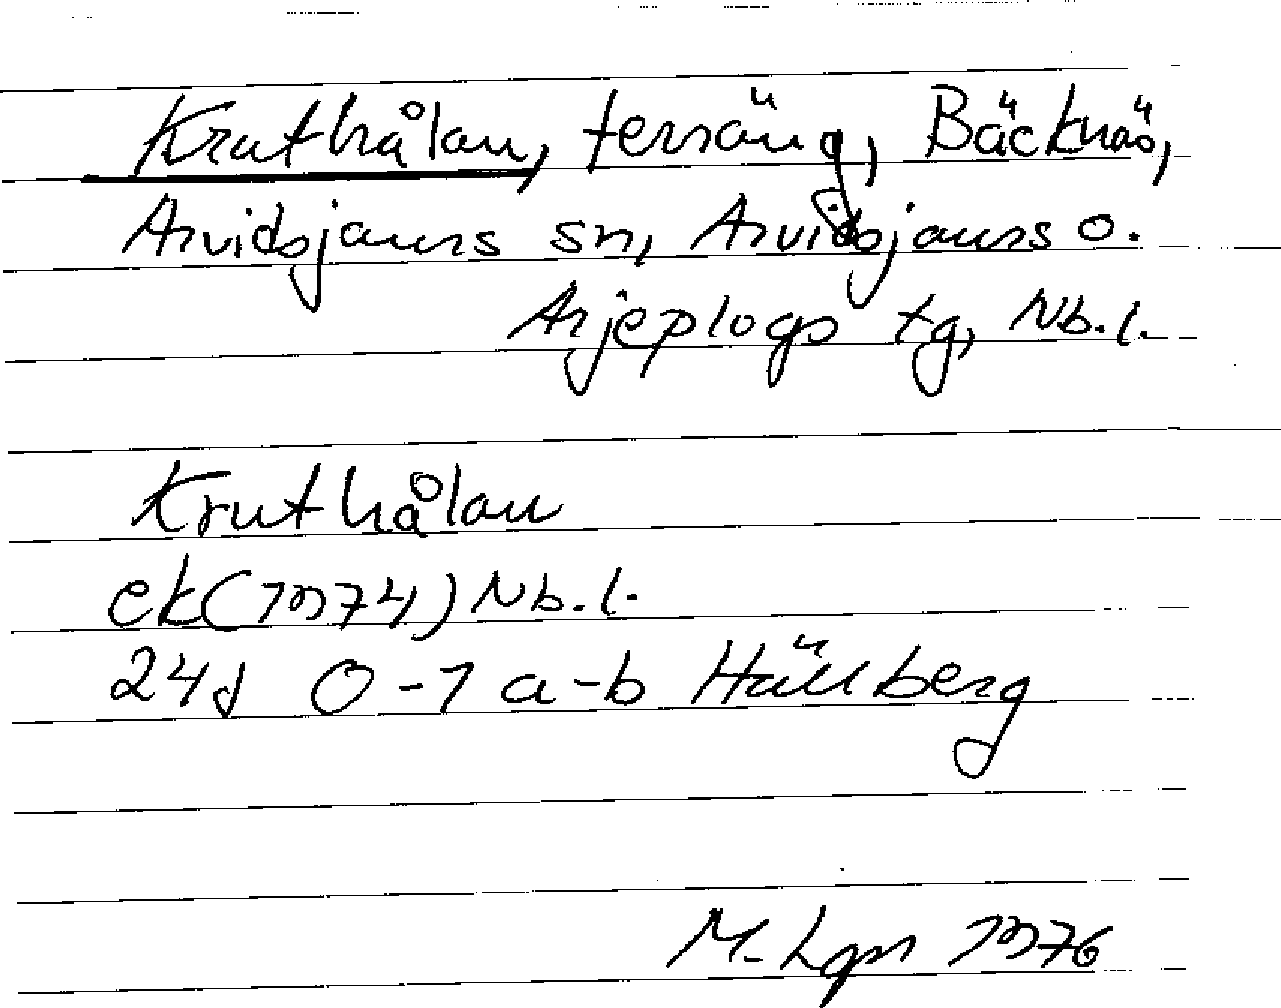 Kruthålan, terräng, Bäcknäs,
Arvidsjaurs sn, Arvidsjaurs o.
Arjeplogs tg, Nb.l.
Kruthålan
ek(1974) Nb.l.
24J 0-1 a-b Hällberg
M. Lgn 1976